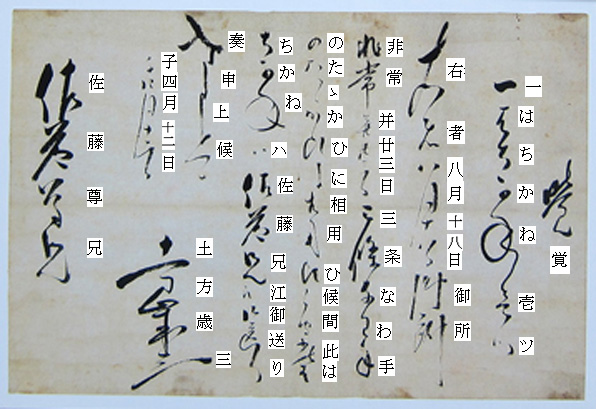 覚
一はちかね 壱ツ
右者八月十八日御所
非常并廿三日三条なわ手
のたゝかひに相用ひ候間此は
ちかねハ佐藤兄江御送り
奏申上候
子四月十二日
土方歳三
佐藤尊兄